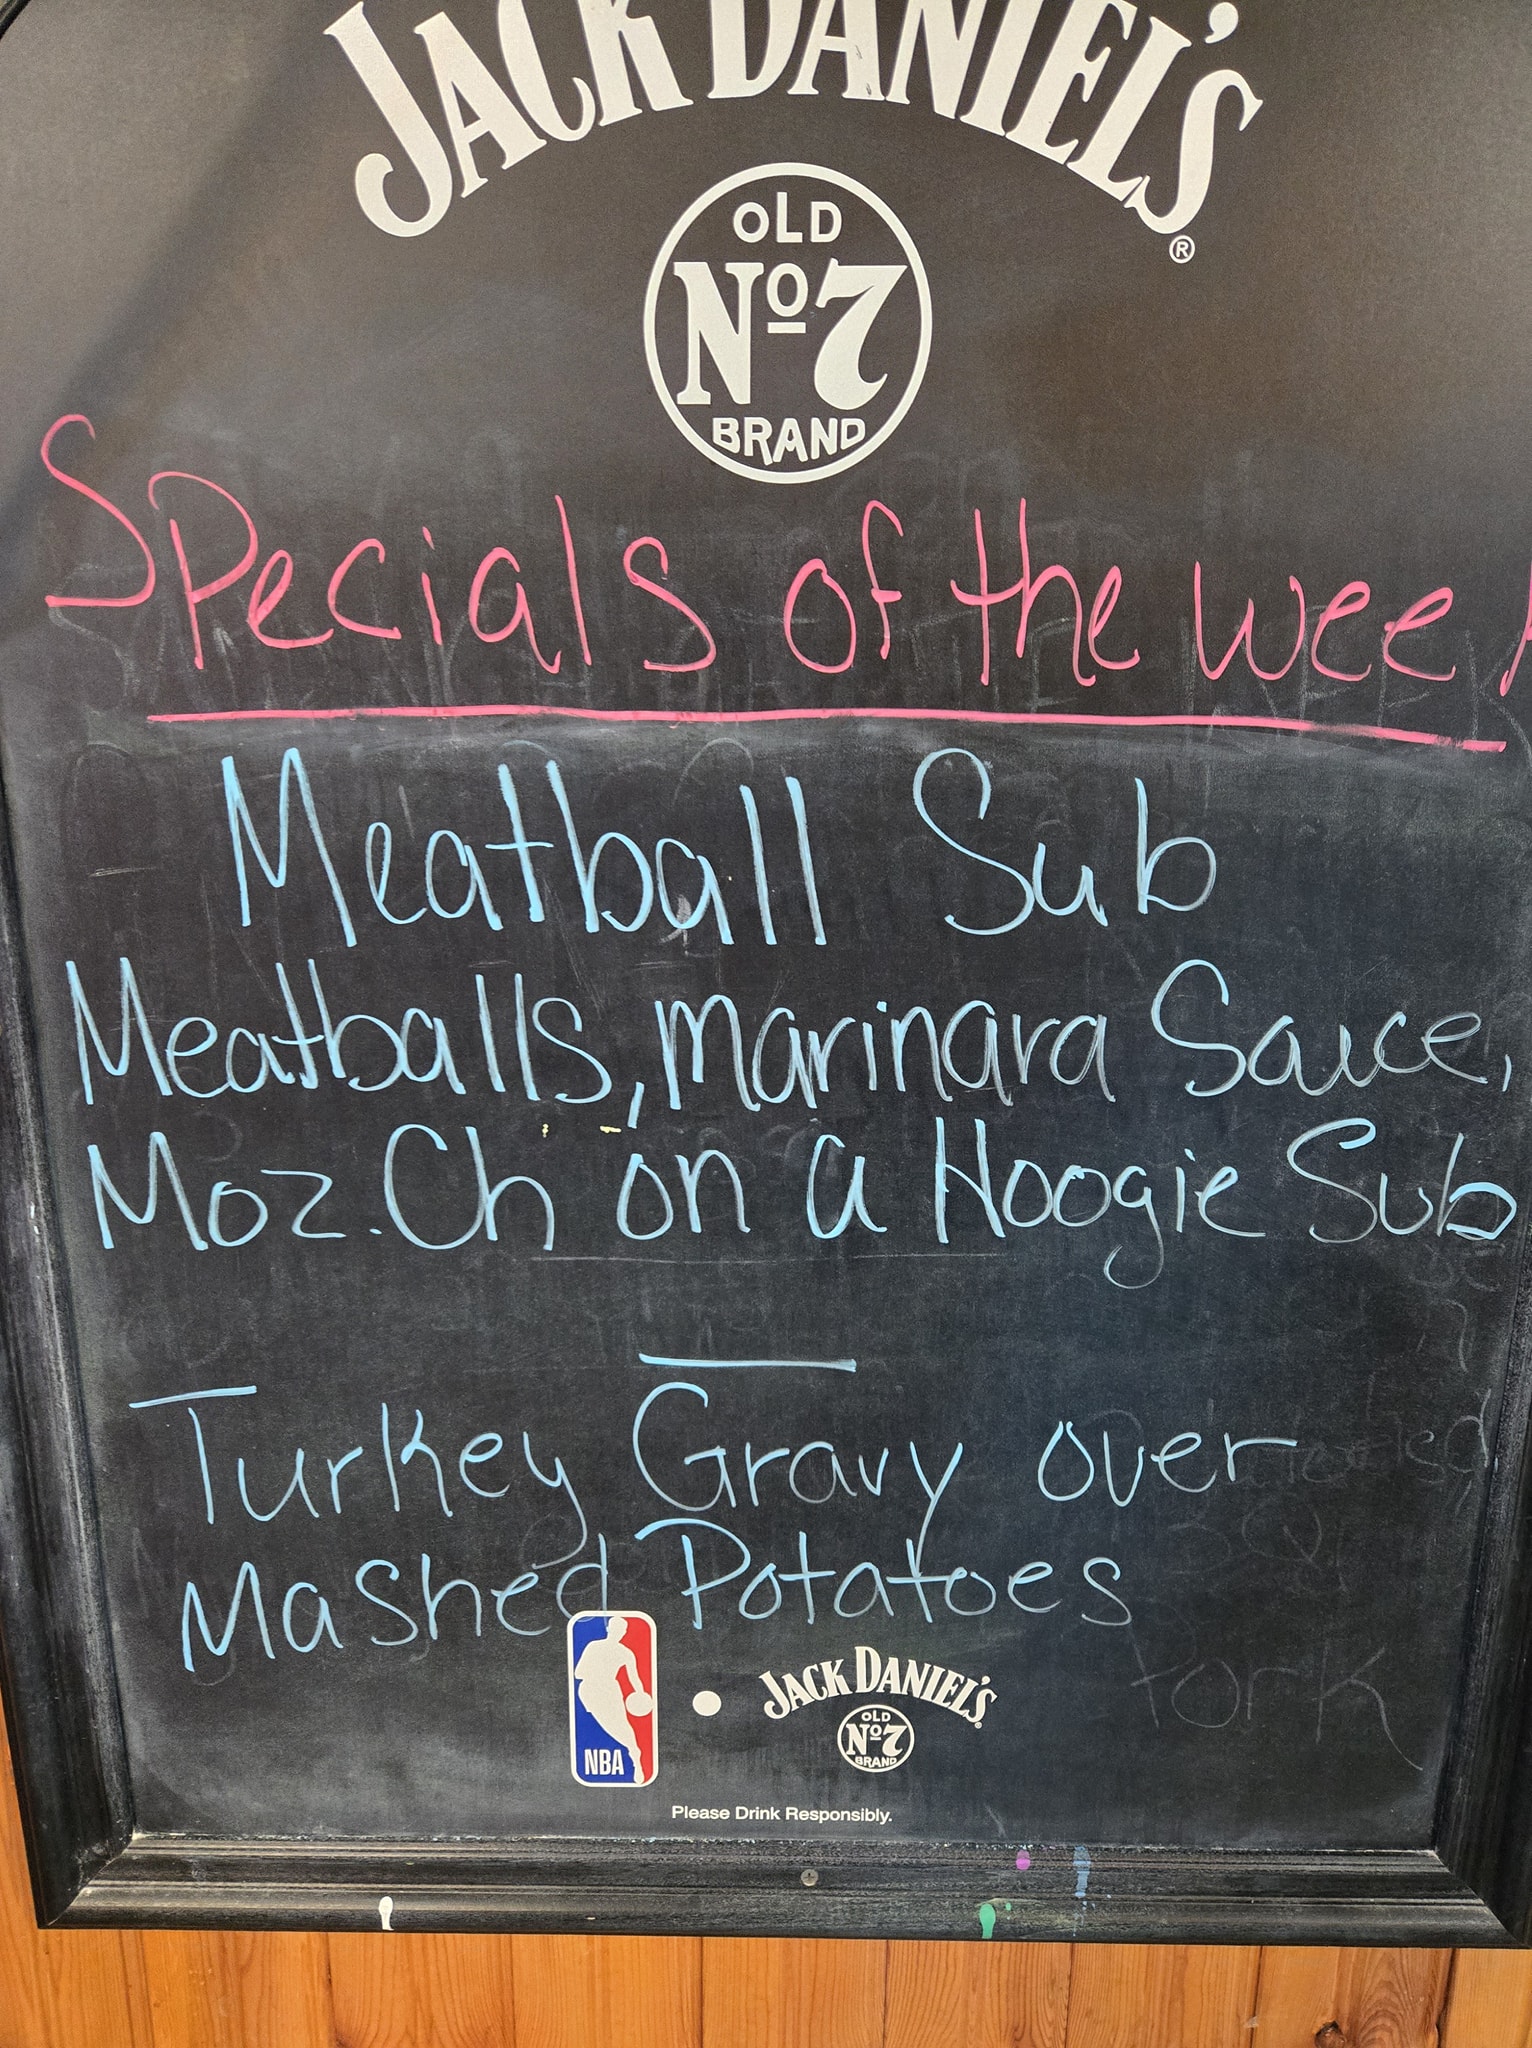 JACK DANIEL'S
®
OLD
Nº7
BRAND
Specials of the week
Meatball Sub
Meatballs, Marinara Sauce,
Moz. Ch on a Hoogie Sub
Turkey Gravy over
Mashed Potatoes
Pork
NBA
JACK DANIEL'S
OLD
Nº7
BRAND
Please Drink Responsibly.